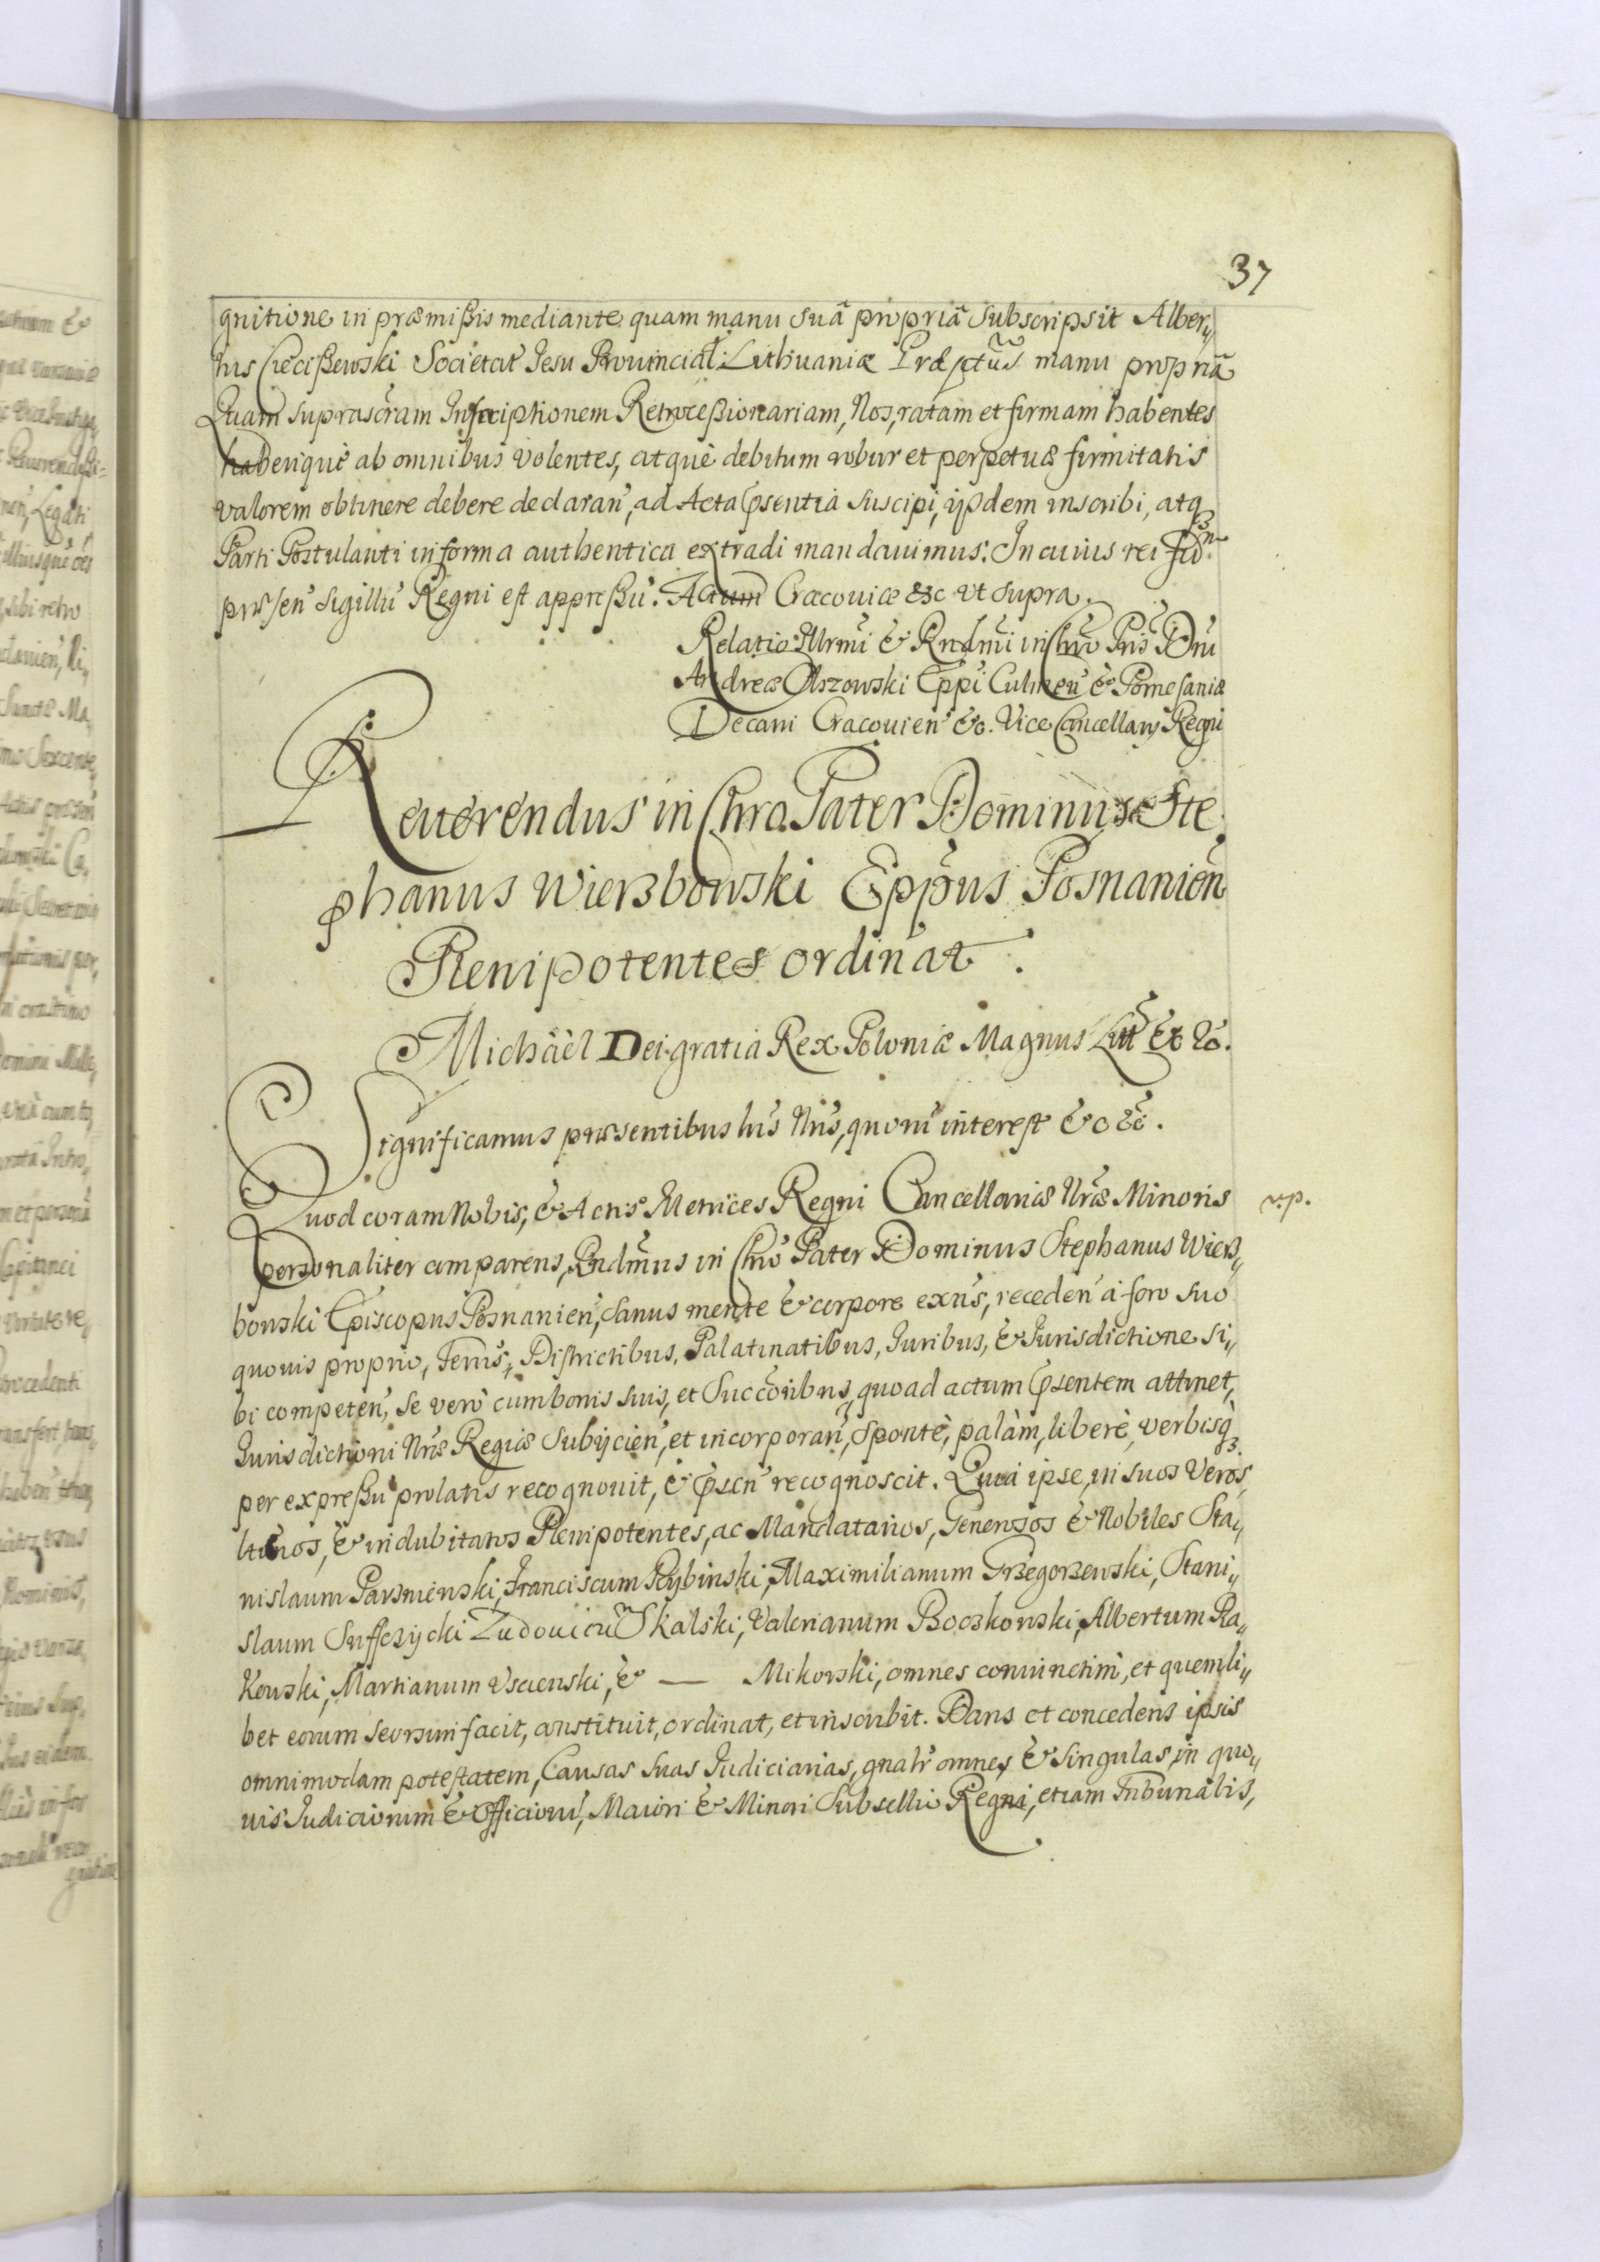 37
gnitione in præmißis mediante quam manu suâ propriâ subscripsit Alber„
tus Ciecißewski Societat Jesu Prouincial Lithuaniæ manu propriâ
Quam suprascrãm Inscriptionem Retroceßionariam, Nos, ratam et firmam habentes
haberiquè ab omnibus volentes, atquè debitum robur et perpetuæ firmitatis
valorem obtinere debere declaran̄, ad Acta p̄sentia suscipi, ijsdem inscribi, atq3
Parti Postulanti in forma authentica extradi mandauimus. In cuius rei fid̄
præsen̄ sigillū Regni est appreßū. Actum Cracouiæ &c ut supra.
Relatio Illrmi & Rndmi in Chro Pris Dni
Andreæ Olszowski Eppi Culmen̄ & Pomesaniæ
Decani Cracouien̄ &c. Vice Cancellarij Regni
Reuerendus in Chro Pater Dominus Ste
phanus Wierßbowski Eppus Posnanien̄
Plenipotentes ordinat.
Michäel Dei gratia Rex Poloniæ Magnus Lit̄t &c &c.
Significamus præsentibus hīs Nrīs, quorū interest &c &c.
Quod coram Nobis, & Actis Metrices Regni Cancellariæ Nr̄æ Minoris
r.p.
personaliter comparens, Rndmus in Chro Pater Dominus Stephanus Wierß„
bowski Episcopus Posnanien̄, sanus mente & corpore exns, receden̄ à foro suo
quouis proprio, Terris, Districtibus, Palatinatibus, Juribus, & Jurisdictione si„
bi competen̄, se verò cum bonis suis, et Succoribus, quoad actum p̄sentem attinet,
Jurisdictioni Nr̄æ Regiæ subijcien̄, et incorporan̄, spontè, palàm, liberè, verbisq3
per expreßū prolatis recognouit, & p̄sen̄ recognoscit. Quia ipse, in suos veros,
ltimos, & indubitatos Plenipotentes, ac Mandatarios, Generosos & Nobiles Sta„
nislaum Parsnienski, Franciscum Rybinski, Maximilianum Grzegorzewski, Stani„
slaum Suffczycki Ludouicū Skalski, Valerianum Boczkowski, Albertum Ra„
kowski, Martianum Uscienski, & — Mikorski, omnes coniunctim, et quemli„
bet eorum seorsim facit, constituit, ordinat, et inscribit. Dans et concedens ipsis
omnimodam potestatem, Causas suas Judiciarias, gnalr̄ omnes & singulas, in quo„
uis Judiciorum & Officiorū, Maiori & Minori Subsellio Regni, etiam Tribunalis,